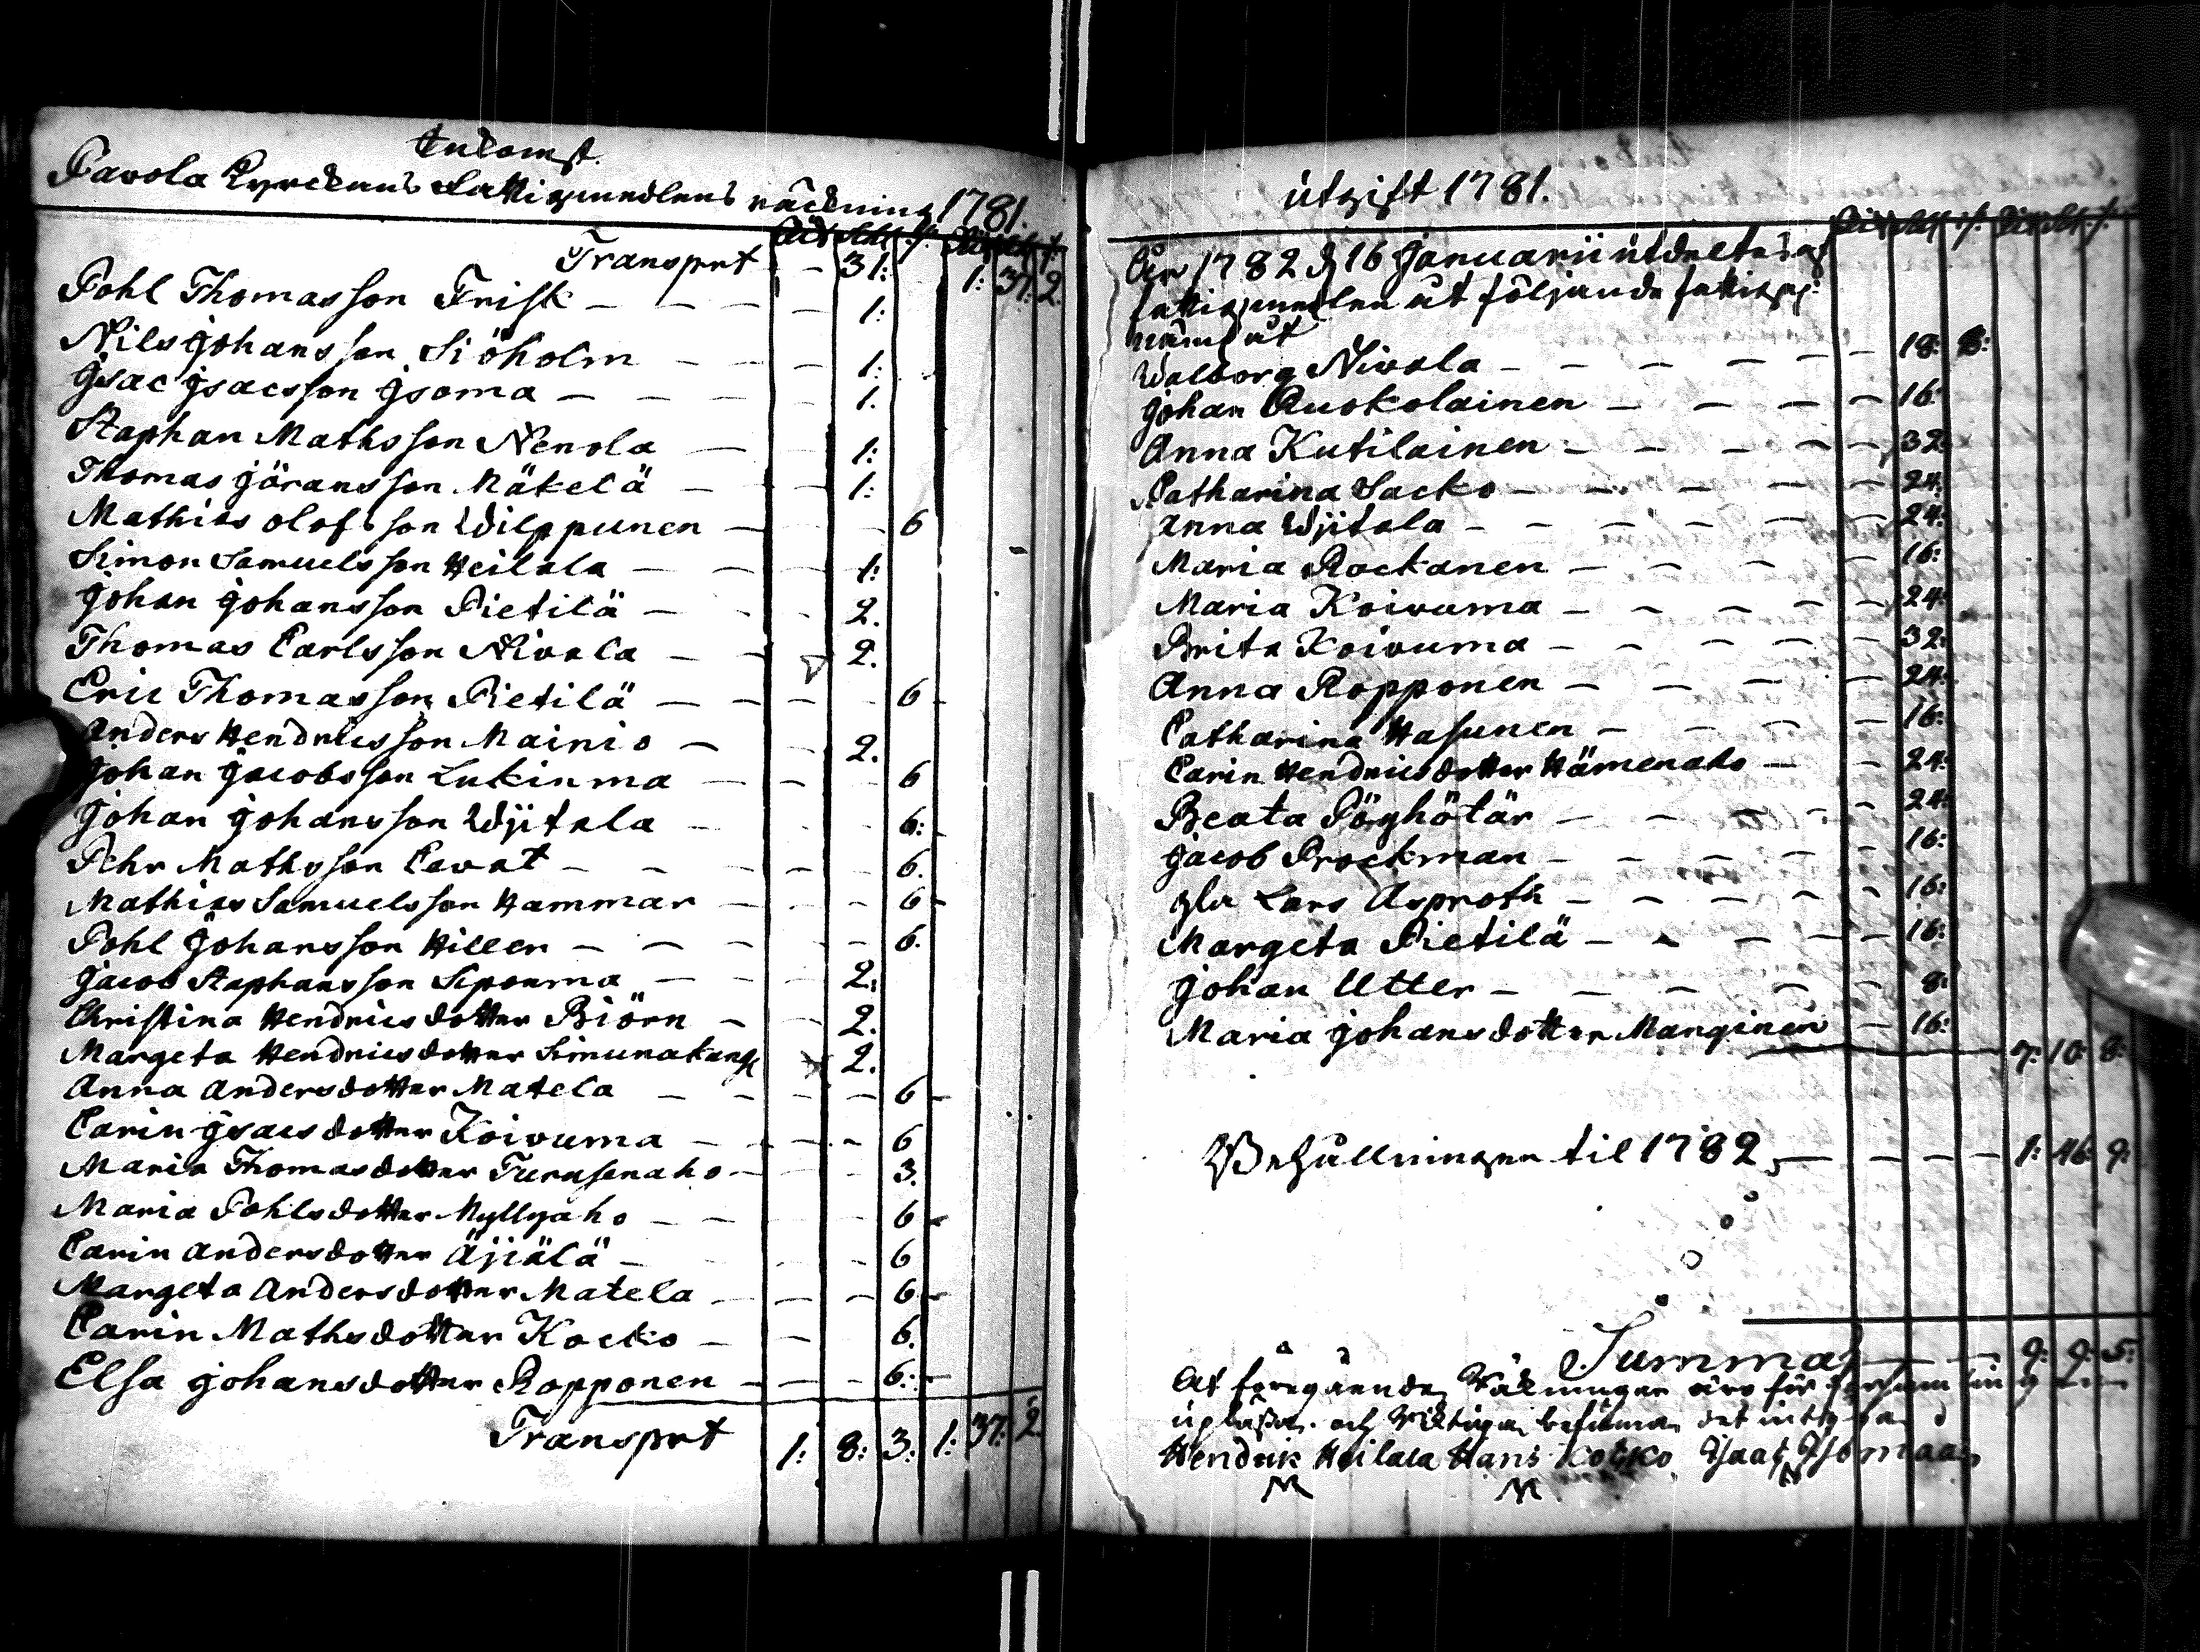 Inkomst.
Pavola Kyrckans Fattigmedlens räckning 1781.
Rdr sk: rf. Rdr sk: rf.
Transprt - 31: 1: 37: 2.
Pohl Thomasson Frisk - - - - 1:
Nils Johansson Siöholm - - - 1:
Isac Isacsson Isoma - - - 1.
Staphan Mathsson Nenola - - 1:
Thomas Jöransson Mäkelä - - 1:
Mathias Olofsson Wilppunen - - - 6
Simon Samuelsson Heilala - - - 1:
Johan Johansson Pietilä - - - 2.
Thomas Carlsson Nivala - - 2.
Eric Thomasson Pietilä - - - - 6 -
Anders Hendricsson Mainio - - 2.
Johan Jacobsson Lukinma - - - 6
Johan Johansson Wjitala - - - 6: -
Pehr Mathsson Cavat - - - - - 6.
Mathias Samuelsson Hammar - - - - 6 -
Pohl Johansson Hiller - - - - - 6.
Jacob Staphansson Siponma - - - 2.
Christina Hendricsdotter Biörn - - 2.
Margeta Hendricsdotter Simunakang 2.
Anna Andersdotter Matela - - - - 6 -
Carin Isacsdotter Koivuma - - - - 6
Maria Thomasdotter Turusenaho - - - 3.
Maria Pohlsdotter Myllyaho - - - - 6 -
Carin Andersdotter Äjiälä - - - 6
Margeta Andersdotter Matela - - - 6 -
Carin Mathsdotter Kocko - - 6.
Elsa Johansdotter Ropponen - - - - 6: -
Transprt 1: 8: 3: 1: 37: 2.
Utgift 1781.
Rdr sk: rf. Rdr sk: rf.
År 1782 d 16 Januarii utdeltes af
fattigmedlen åt följande fattige,
nämt:
Walborg Nivala - - - - - 18: 8:
Johan Ruokolainen - - - - - 16:
Anna Kutilainen - - - - - 32:
Catharina Sacko - - - - - 24:
Anna Wjitala - - - - - - 24:
Maria Rockanen - - - - - 16:
Maria Koivuma - - - - - 24:
Brita Koivuma - - - - - 32:
Anna Ropponen - - - - - 24:
Catharina Hasunen - - - - 16:
Carin Hendricsdotter Hämenaho - - 24:
Beata Pöyhötär - - - - - 24:
Jacob Brockman - - - - - 16:
gla Lars Asproth - - - - - 16:
Margeta Pietilä - - - - - 16:
Johan Utter - - - - - 8:
Maria Johansdotter Manginen - 16:
7: 10: 8:
Behållningen til 1782, - - - - - 1: 46: 9:
Summa - - - 9: 9: 5:
At föregående Räkningar äro för
uplästa och Riktiga befundna det
Hendrik Heilala Hans Kocko Isaac Isomaa